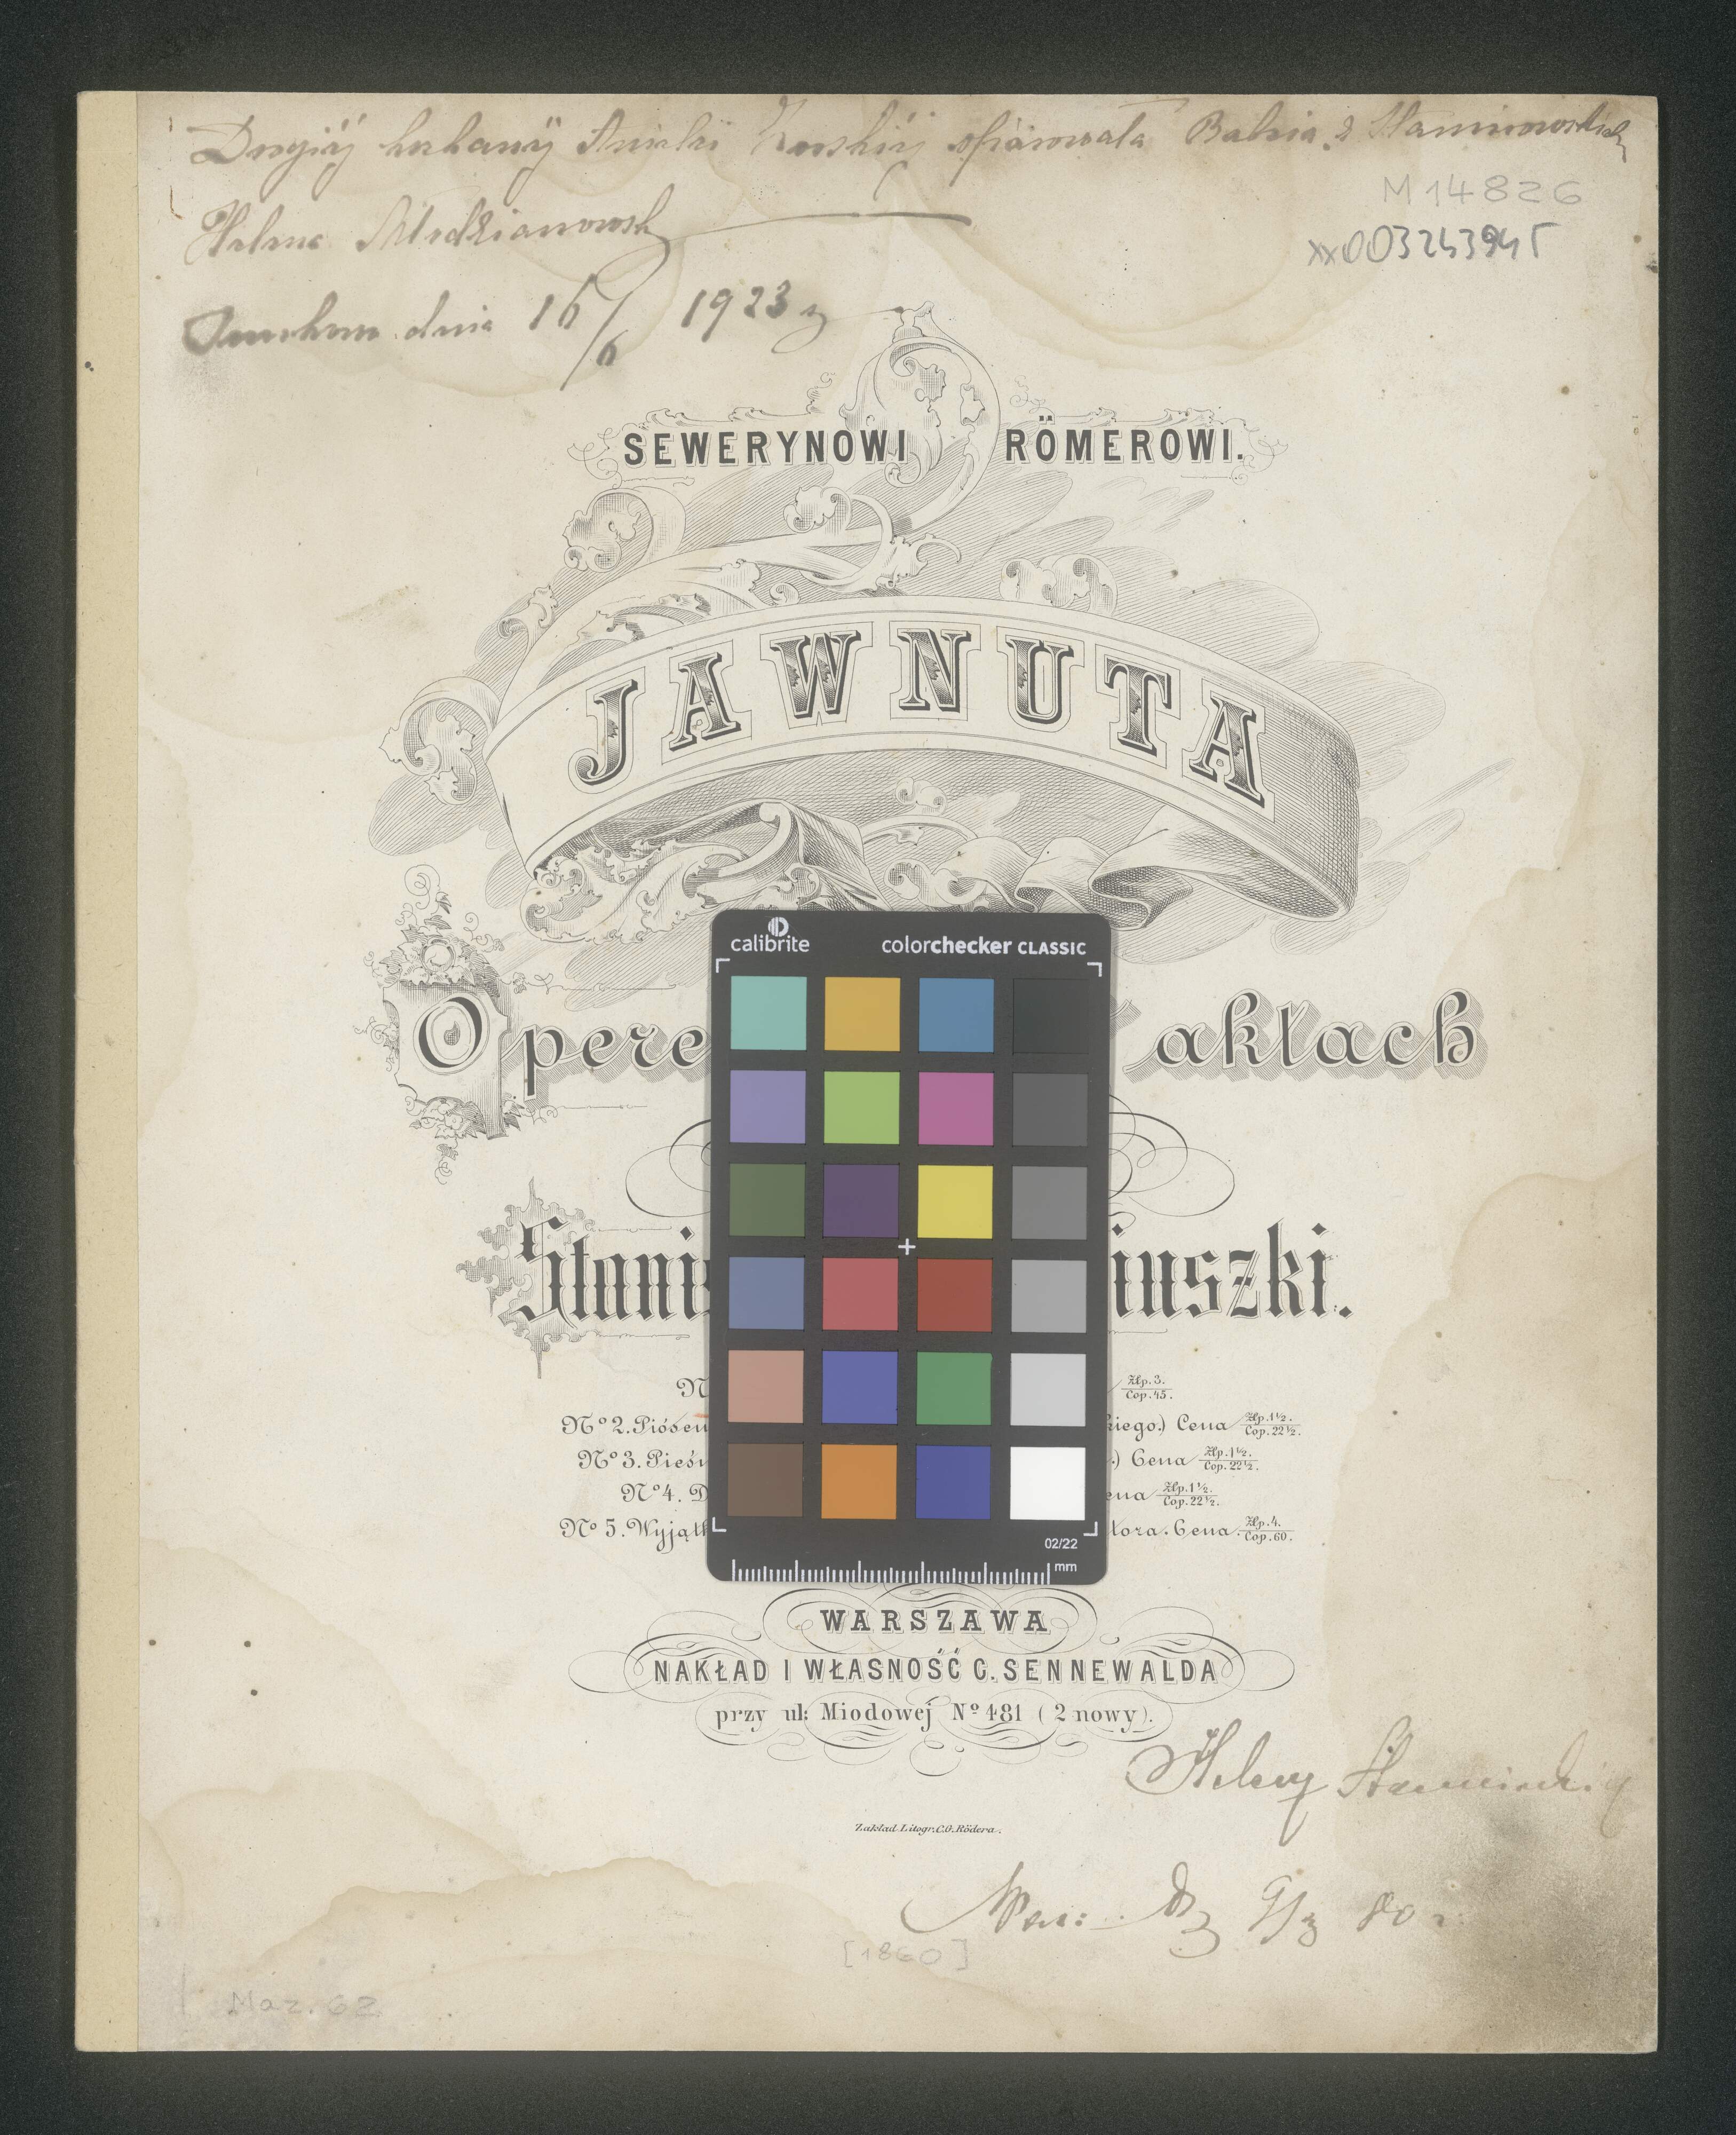 opiarowała Babcia z
Helena Młodzianowsk
dnia 16/6 1923 r
M 14826
xx003243945
SEWERYNOWI RÖMEROWI.
JAWNUTA
Opere aktach
Stanis iuszki.
N Złp. 3. Cop. 45.
Nº 2. Piósen kiego.) Cena Złp. 1½. Cop. 22½.
Nº 3. Pieśń .) Cena Złp. 1½. Cop. 22½.
Nº 4. D ena Złp. 1½. Cop. 22½.
Nº 5. Wyjątk tora. Cena. Złp. 4. Cop. 60.
calibrite colorchecker CLASSIC
02/22
mm
WARSZAWA
NAKŁAD I WŁASNOŚĆ C. SENNEWALDA
przy ul: Miodowej Nº 481 (2 nowy).
Heleny
Zakład Litogr. C.G. Rödera.
80 r
[1860]
Maz. 62